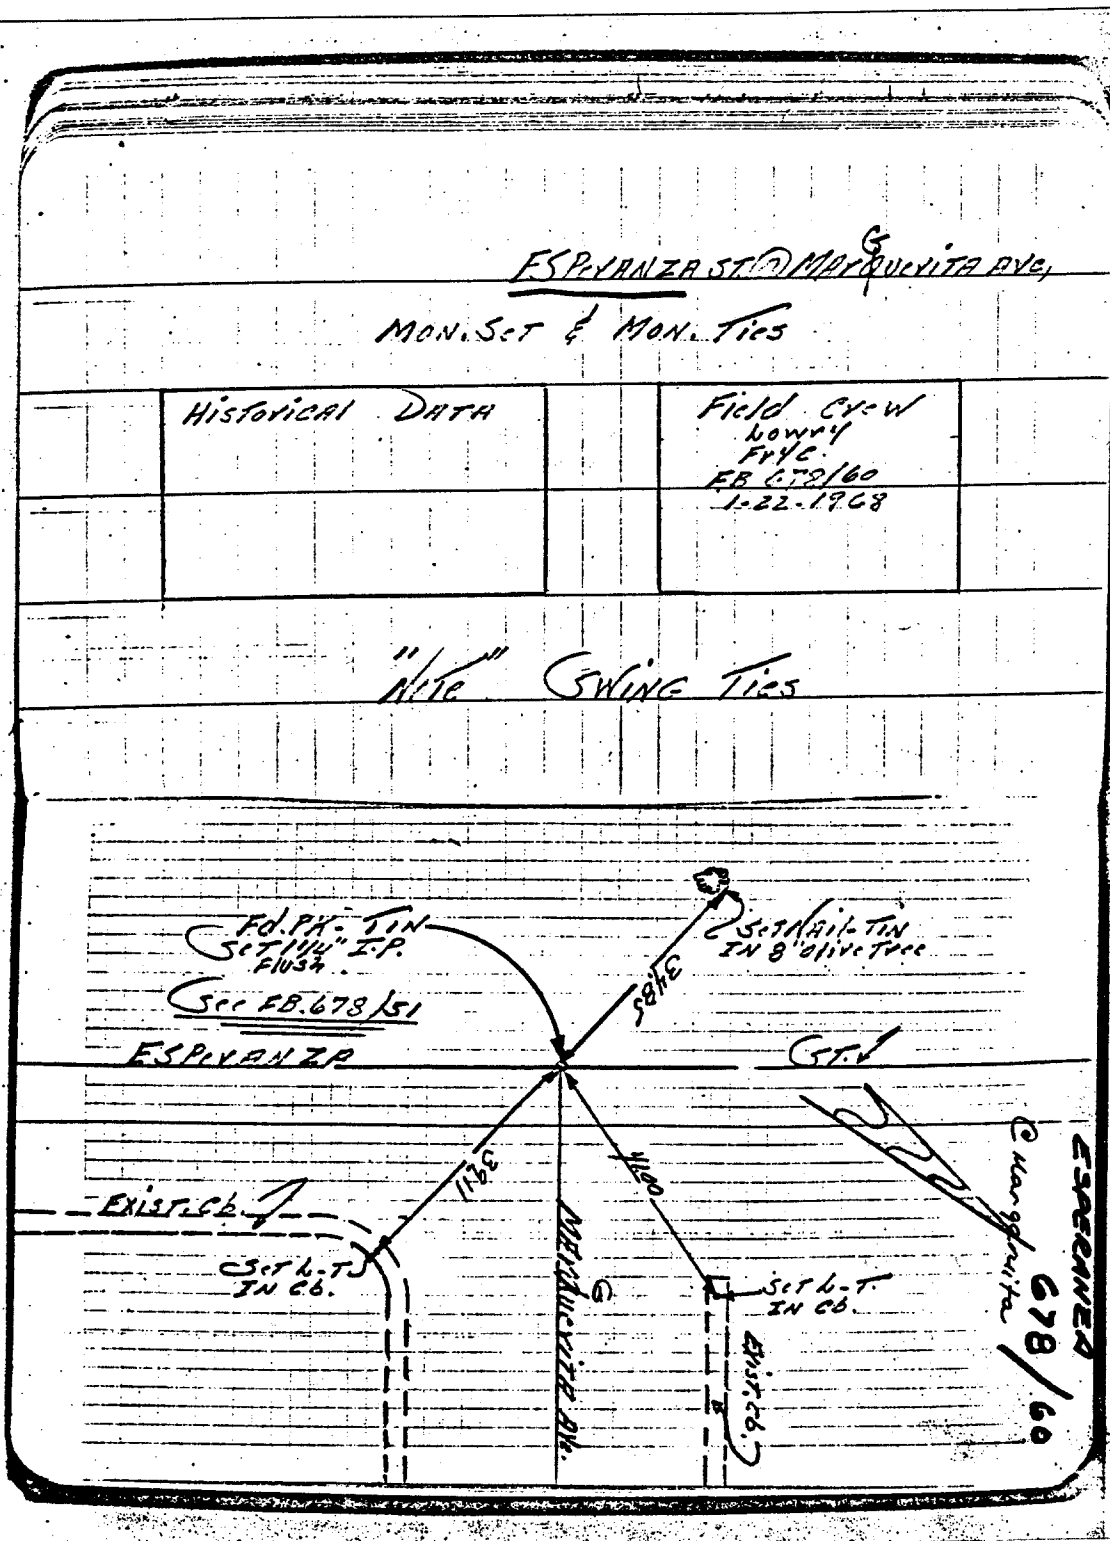 ESPERANZA ST @ MARGUERITA AVE,
MON. SET & MON. TIES
HISTORICAL DATA
Field Crew
Lowry
FB 678/60
1-22-1968
"NOTE" SWING TIES
Fd. PK-TIN
SET 1 1/4" I.P.
Flush
See FB.678/51
SET NAIL-TIN
IN 8" Olive Tree
34.85
ESPERANZA
ST.
39.11
41.00
EXIST. Cb.
SET L-T
IN Cb.
SET L-T.
IN Cb.
MARGUERITA AVE.
EXIST. Cb.
ESPERANZA
@ Marguerita
678/60